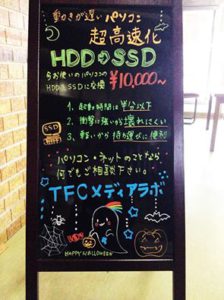 動きが遅いパソコン
超高速化
HDD→SSD
今お使いのパソコンの
HDDをSSDに交換
¥10,000〜
1. 起動時間は半分以下
2. 衝撃に強いから壊れにくい
3. 軽いから持ち運びに便利
SSD
パソコン・ネットのことなら
何でもご相談下さい。
TFCメディアラボ
HAPPY HALLOWEEN